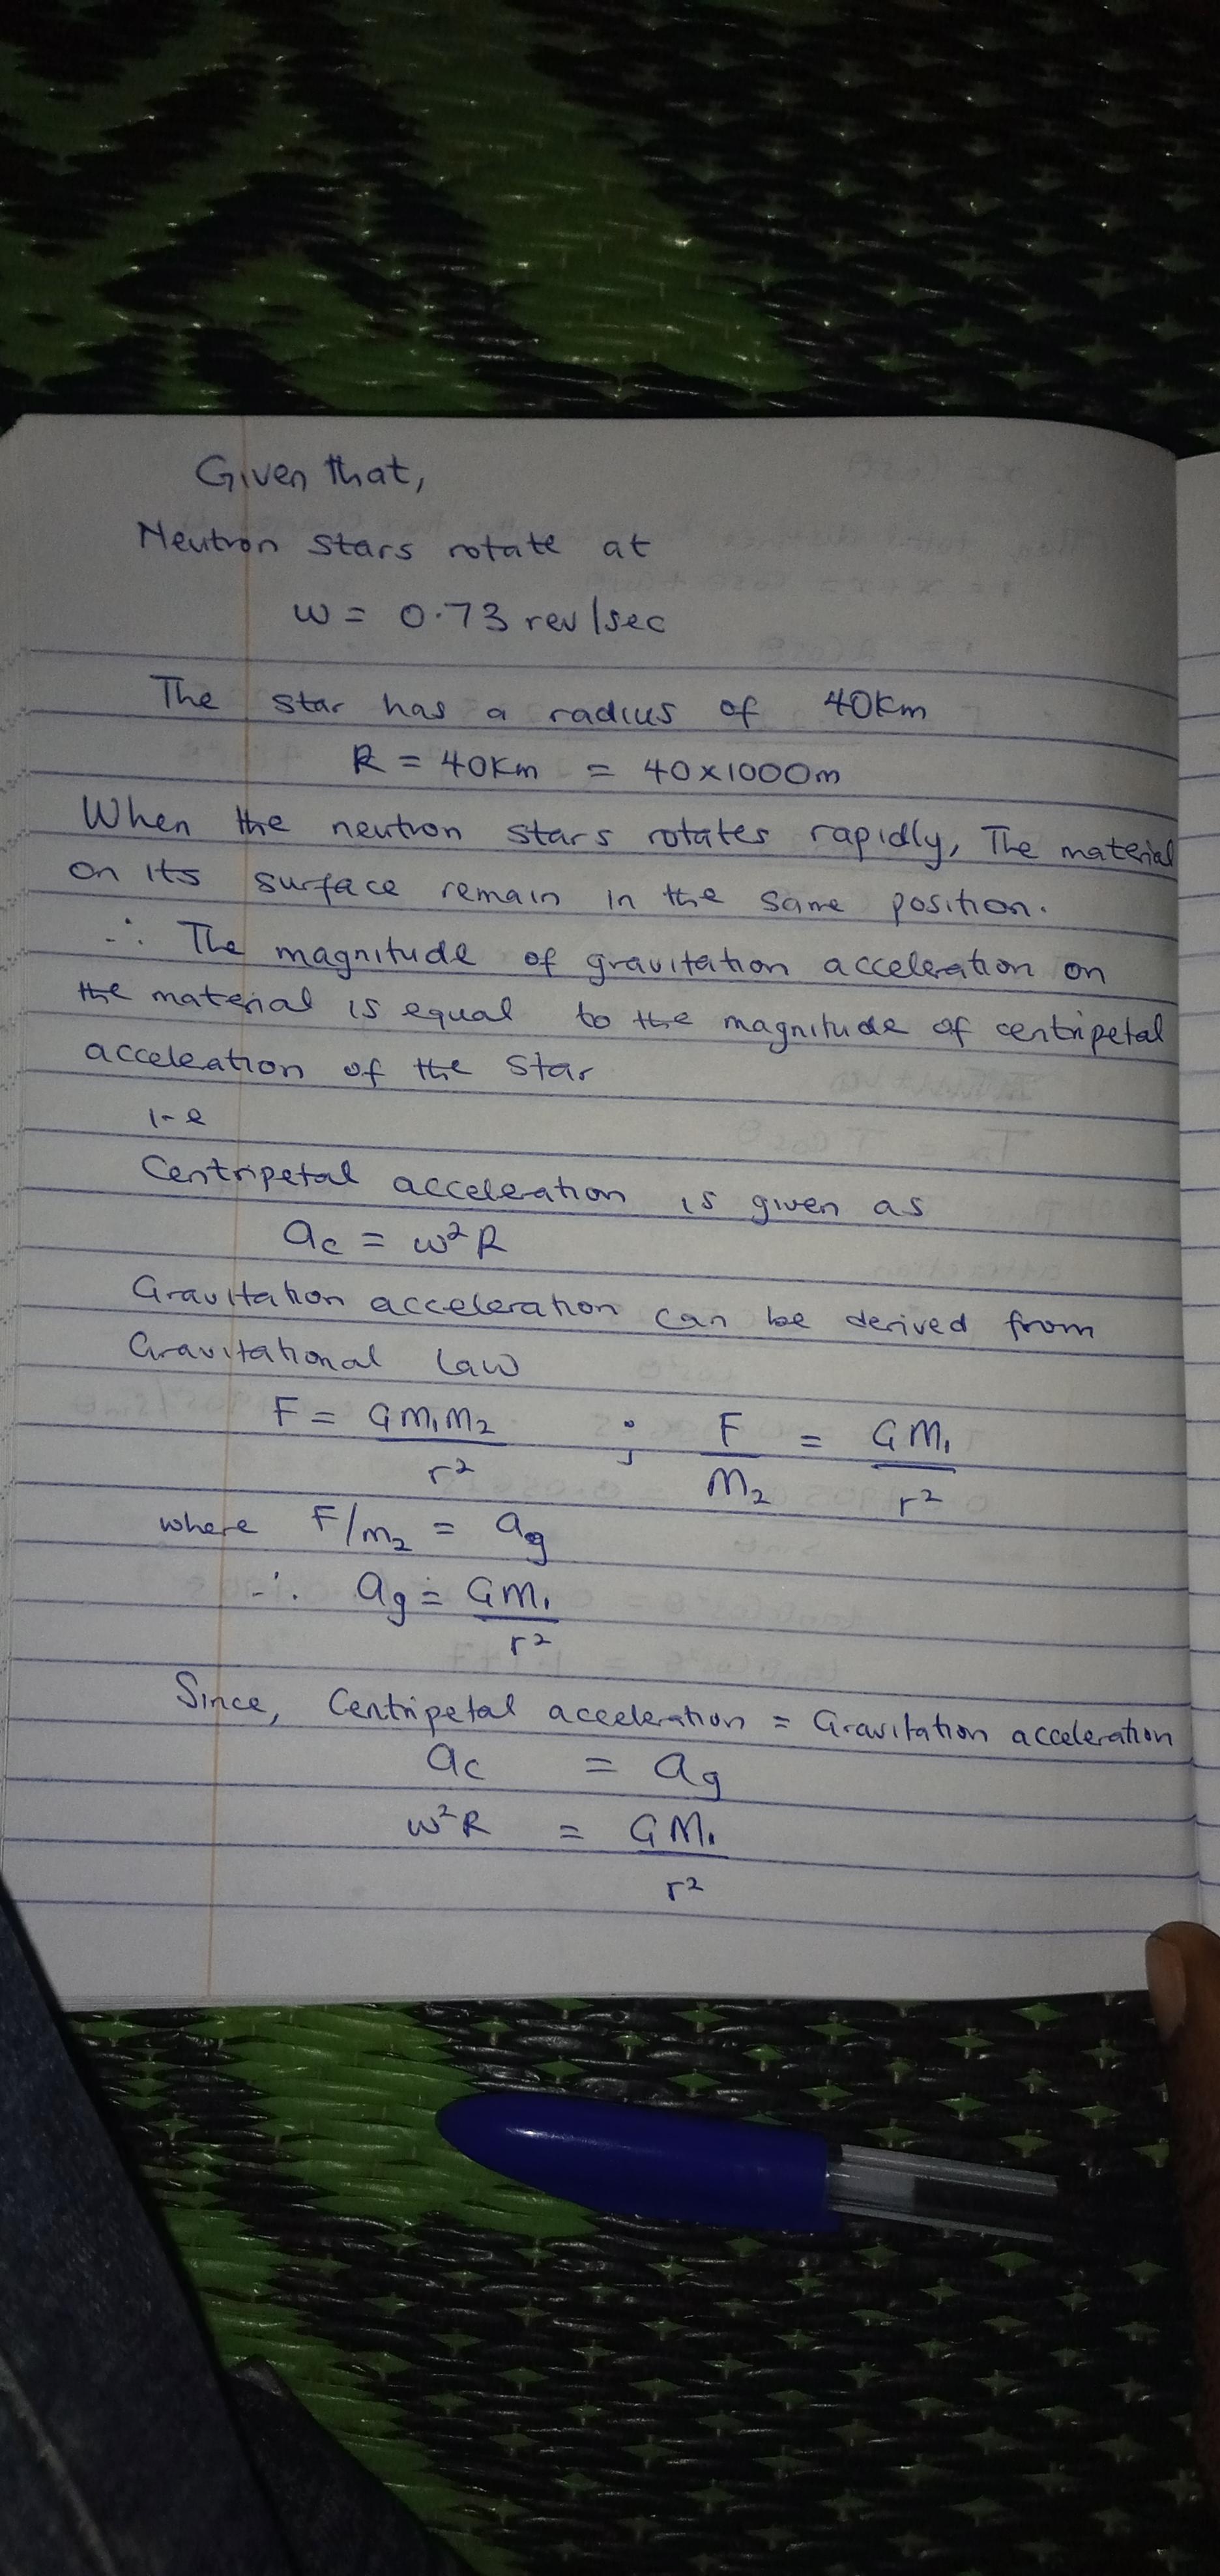 Given that,
Neutron stars rotate at
w = 0.73 rev/sec
The star has a radius of 40km
R = 40Km = 40x1000m
When the neutron stars rotates rapidly, The material
on its surface remain in the same position.
∴ The magnitude of gravitation acceleration on
the material is equal to the magnitude of centripetal
acceleation of the star
i-e
Centripetal acceleration is given as
ac = w²R
Gravitation acceleration can be derived from
Gravitational law
F = GM₁M₂ ; F = GM₁
r² M₂ r²
where F/m₂ = ag
∴ ag = GM₁
r²
Since, Centripetal acceleration = Gravitation acceleration
ac = ag
w²R = GM₁
r²